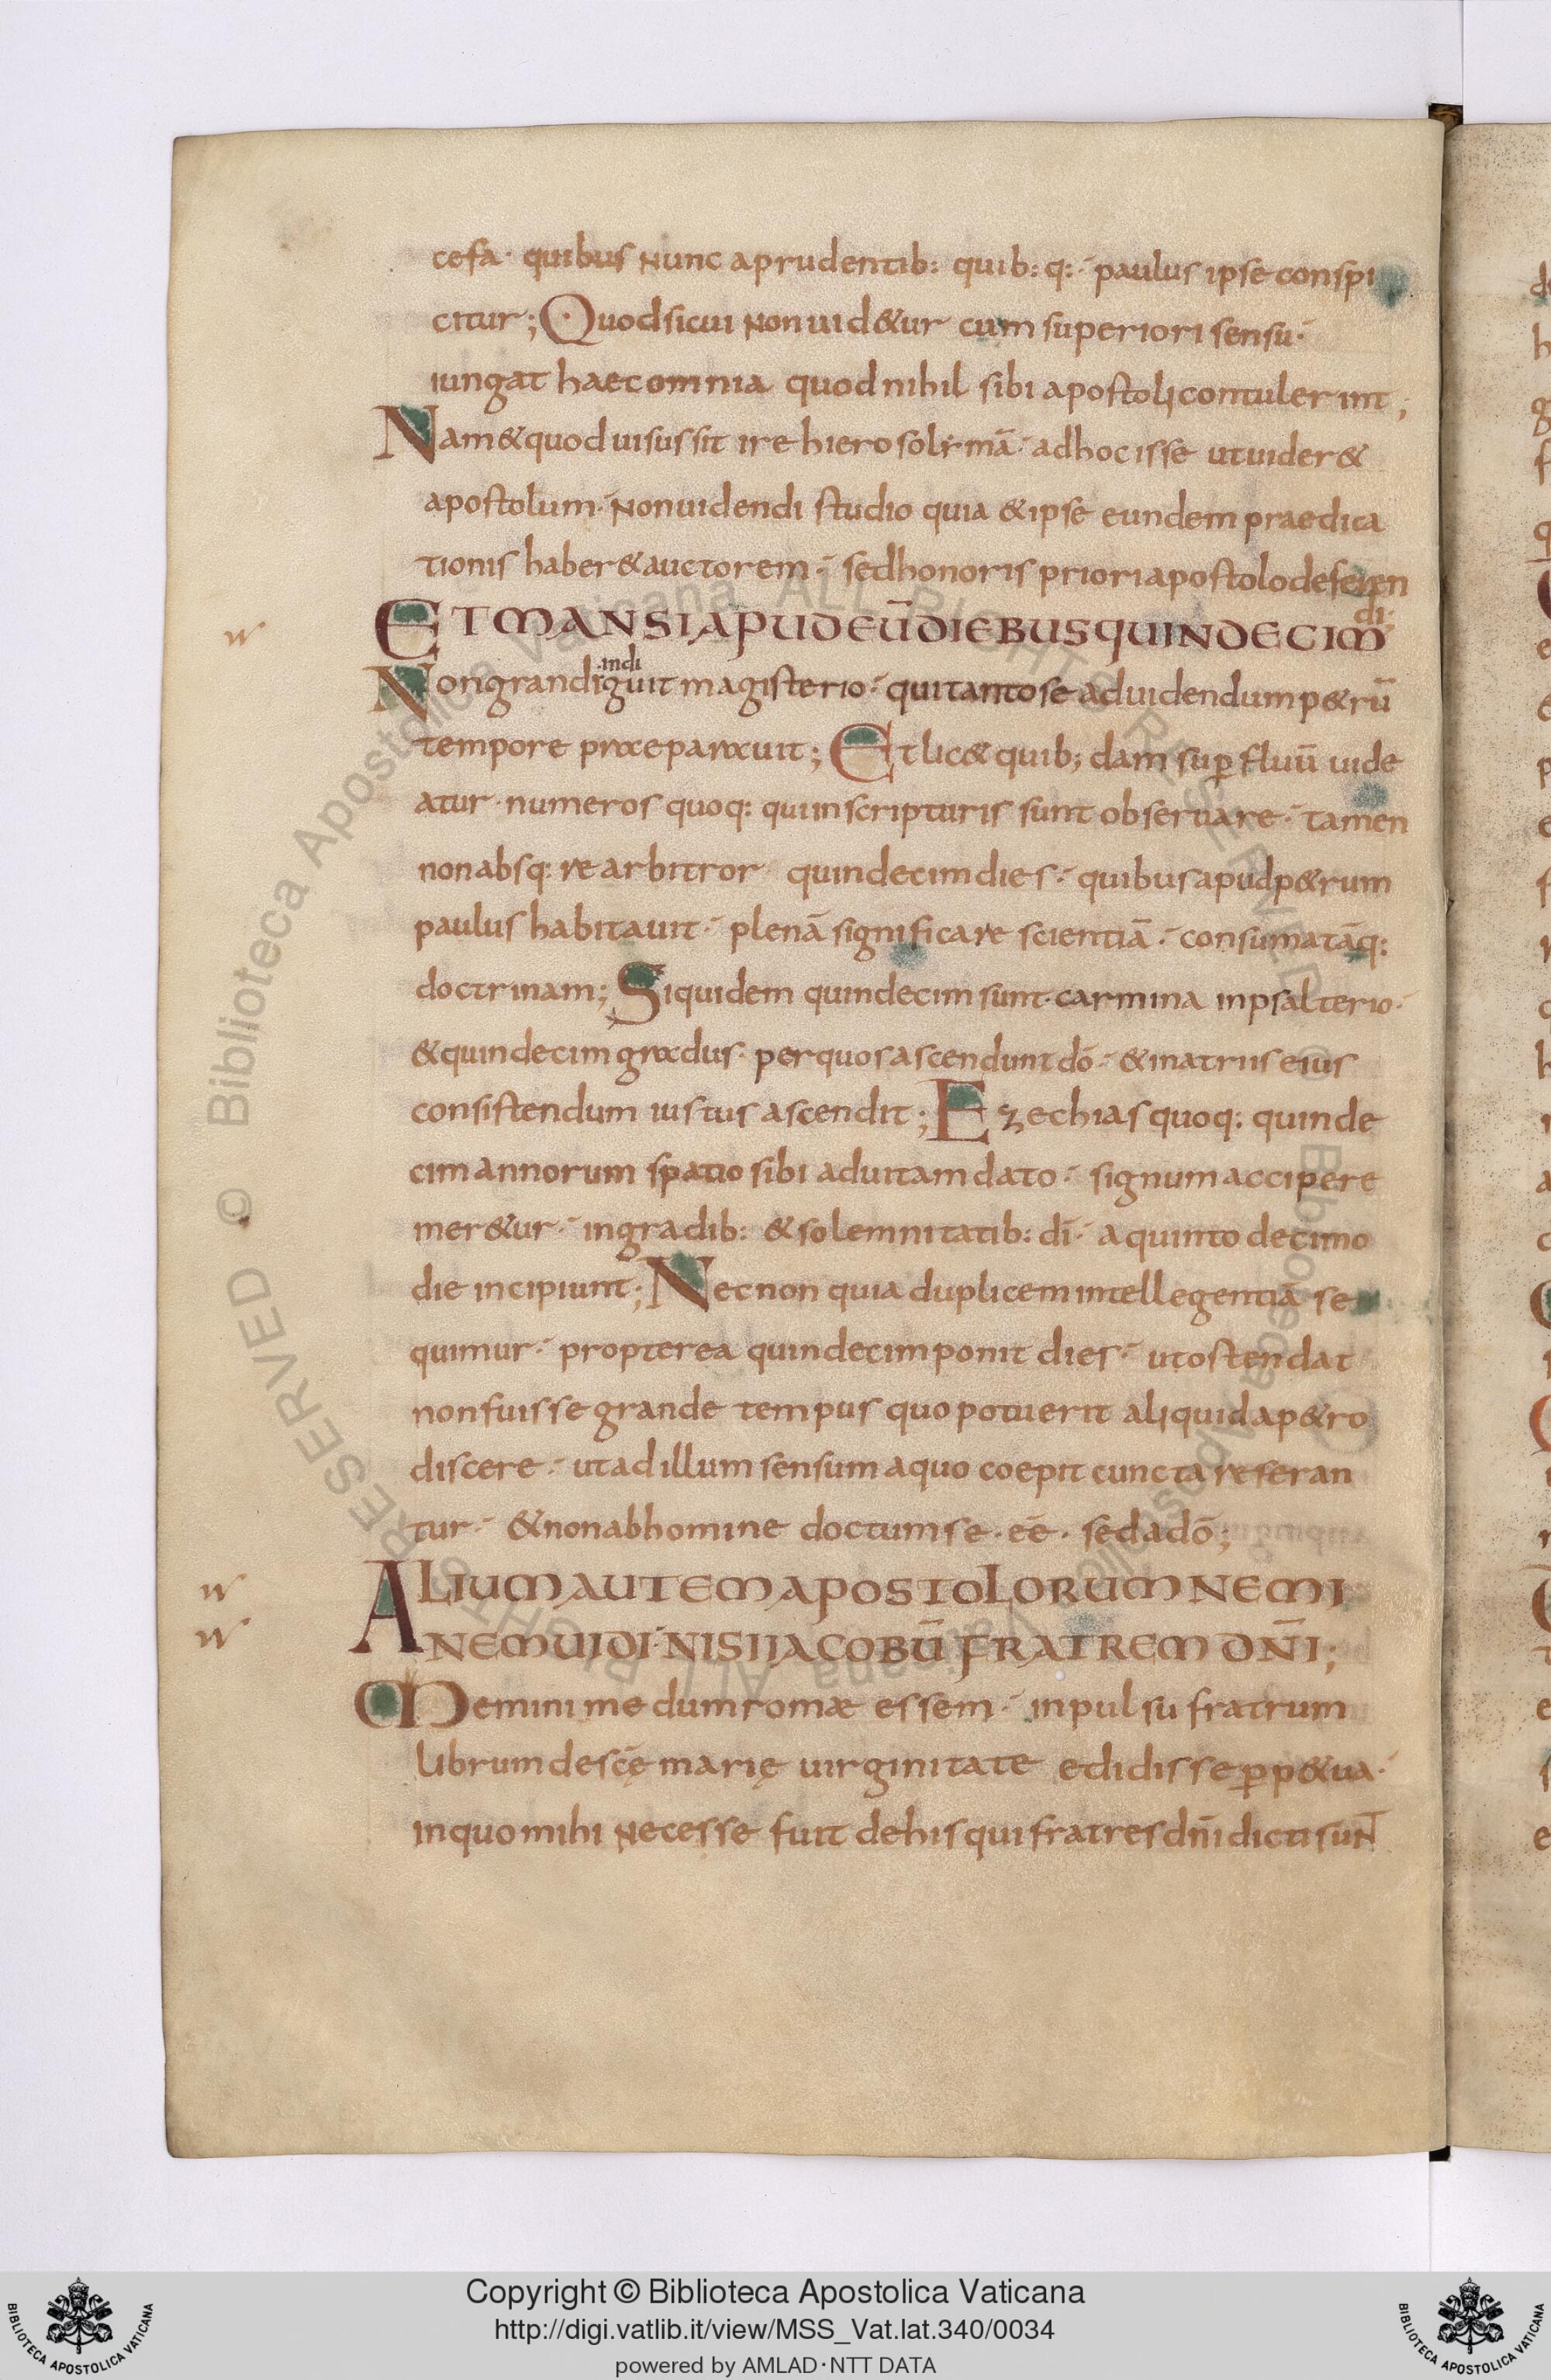 cefa· quibus nunc aprudentib: quib:q:·´ paulus ipse conspi
citur; Quodsicui nonuid&ur cum superiori sensu·
iungat haec omnia quod nihil sibi apostoli contulerint;
Nam&quod uisus sit ire hierosolymā·´ adhoc isse utuider&
apostolum·´ nonuidendi studio quia &ipse eundem praedica
tionis haber& auctorem·´ sed honoris priori apostolo deferen
di·
ETMANSIAPUDEŪDIEBUSQUINDECIM
indi
Nongrandiguit magisterio·´ qui tanto se aduidendum p&rū
tempore praeparauit; Et lic& quib;dam sup̄fluū uide
atur· numeros quoq: qui inscripturis sunt obseruare·´ tamen
non absq: re arbitror quindecim dies·´ quibus apud p&rum
paulus habitauit·´ plenā significare scientiā·´ consumatāq:
doctrinam; Siquidem quindecim sunt· carmina inpsalterio·´
&quindecim gradus· per quos ascendunt dō·´ &inatriis eius
consistendum iustus ascendit; Ezechias quoq: quinde
cim annorum spatio sibi aduitam dato·´ signum accipere
mer&ur·´ ingradib: &solemnitatib: dī·´ aquinto decimo
die incipiunt; Necnon quia duplicem intellegentiā se
quimur·´ propterea quindecim ponit dies·´ utostendat
non fuisse grande tempus quo potuerit aliquid ap&ro
discere·´ utad illum sensum aquo coepit cuncta referan
tur·´ &non abhomine doctum se·ēē· sed adō;
ALIUMAUTEMAPOSTOLORUMNEMI
NEMUIDI·´NISIIACOBŪFRATREMDN̄I;
Memini me dum romæ essem·´ inpulsu fratrum
librum descē marię uirginitate edidisse p̄p&ua·´
inquo mihi necesse fuit dehis qui fratres dn̄i dicti sunt
Copyright © Biblioteca Apostolica Vaticana
http://digi.vatlib.it/view/MSS_Vat.lat.340/0034
powered by AMLAD·NTT DATA
BIBLIOTECA APOSTOLICA VATICANA
BIBLIOTECA APOSTOLICA VATICANA
© Biblioteca Apostolica Vaticana ALL RIGHTS RESERVED © Biblioteca Apostolica Vaticana ALL RIGHTS RESERVED